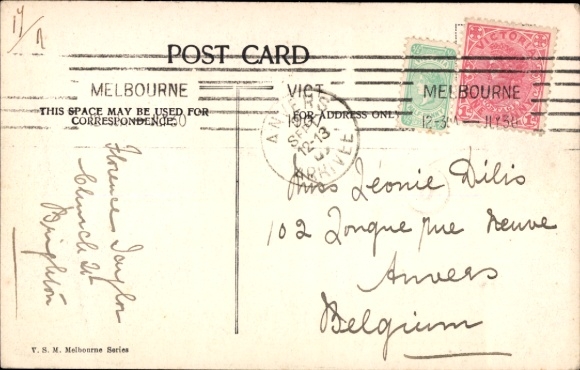 17/
POST CARD
MELBOURNE
VICT
MELBOURNE
VICTORIA
THIS SPACE MAY BE USED FOR
CORRESPONDENCE.
FOR ADDRESS ONLY
ANVERS
12-13
ARRIVÉE
Florence Taylor
Church St
Brighton
Miss Léonie Dilis
102 Longue rue Neuve
Anvers
Belgium
V. S. M. Melbourne Series